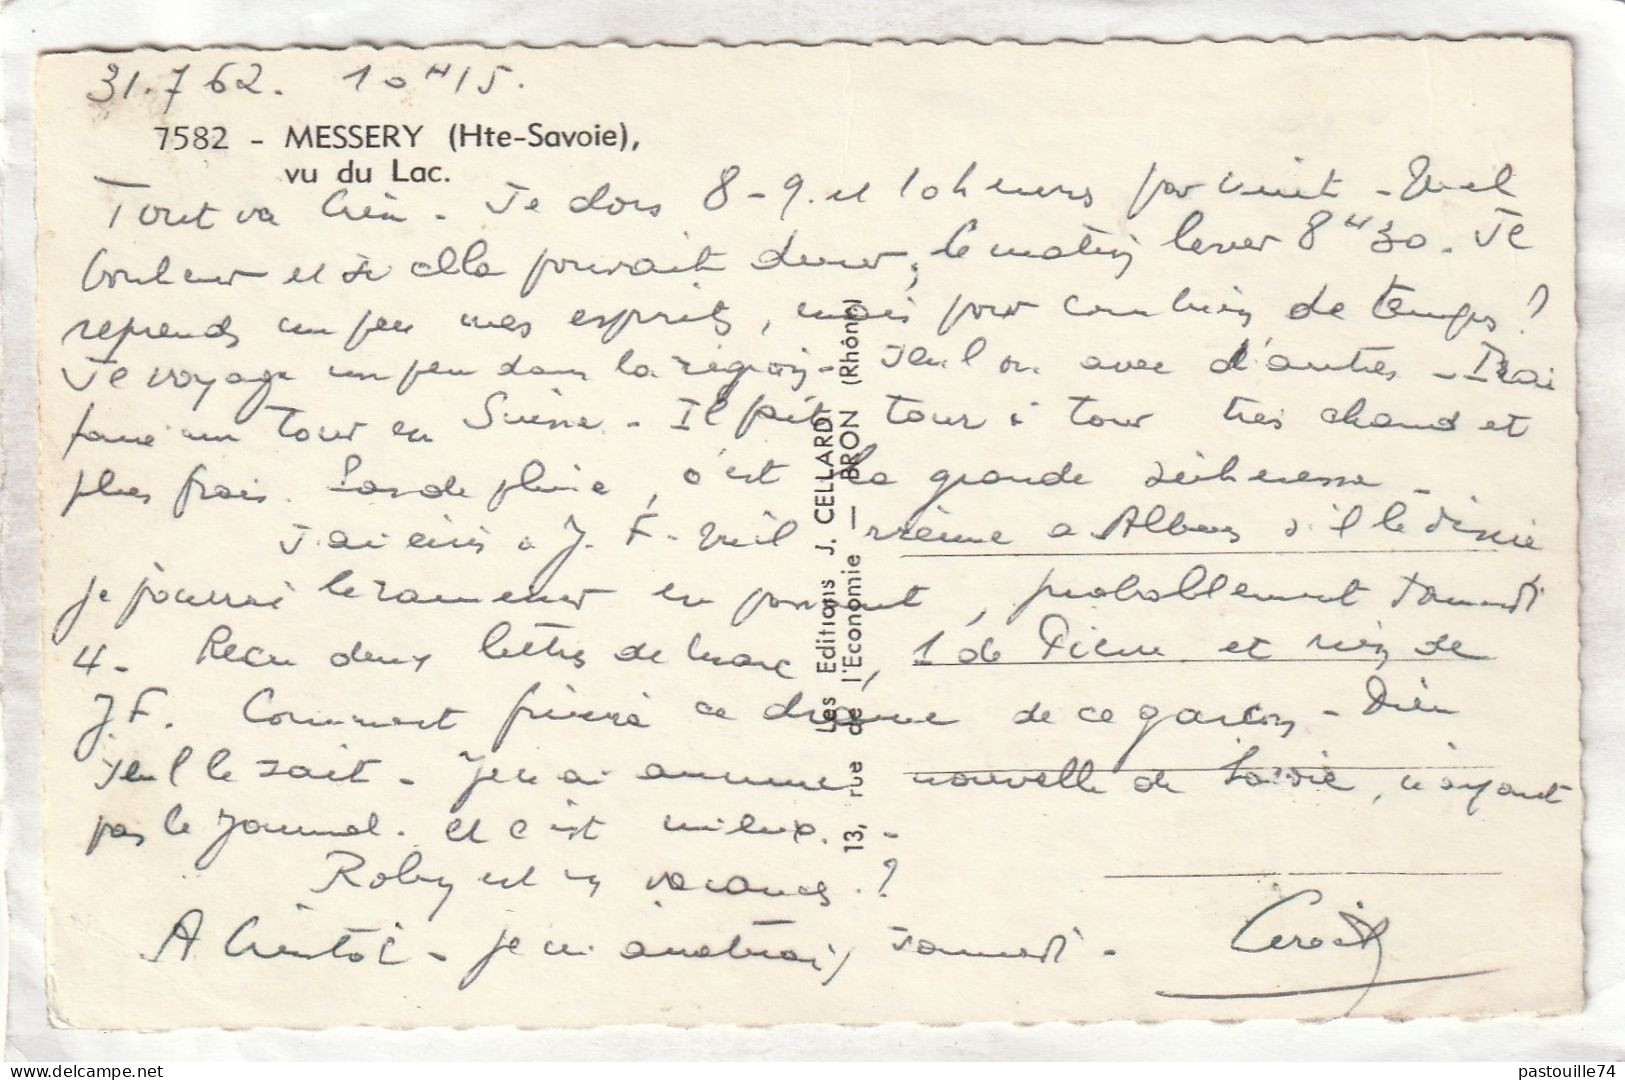 31.7 62. 10 H 15.
7582 - MESSERY (Hte-Savoie),
vu du Lac.
Tout va bien - Je dors 8-9. et 10 heures par nuit - Quel
bonheur et si cela pouvait durer, le matin lever 8 H 30. Je
reprends un peu mes esprits, mais pour combien de temps ?
Je voyage un peu dans la région - seul ou avec d'autres - Irai
faire un tour en Suisse - Il fait tour à tour très chaud et
plus frais. Pas de pluie, c'est la grande sécheresse -
J'ai écrit à J. F. qu'il vienne à s'il le désire
je pourrai le ramener en passant, probablement samedi
4 - Reçu deux lettres de, 1 de Pierre et rien de
J F. Comment finira ce drame de ce garçon - Dieu
seul le sait - Je n'ai aucune nouvelle de Savoie, n'ayant
pas le journal. et c'est mieux. -
Roby est en vacances. ?
A bientôt - je samedi -
Les Editions J. CELLARD
13, rue de l'Economie — BRON (Rhône)
pastouille74